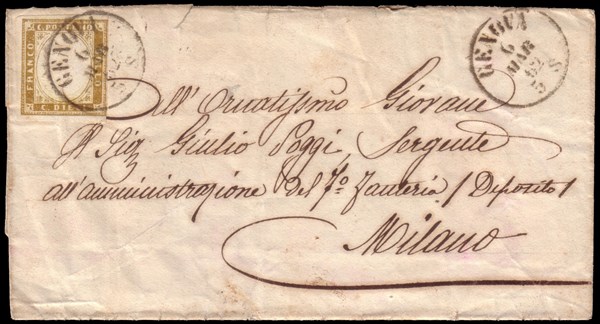 C. POSTALE
FRANCO
C. DIECI
GENOVA
6
MAR
62
GENOVA
6
MAR
62
5 S
All' Ornatissmo Giovane
Il Sig Giulio Poggi Sergente
all'amministrazione del 7º Fanteria / Deposito /
Milano